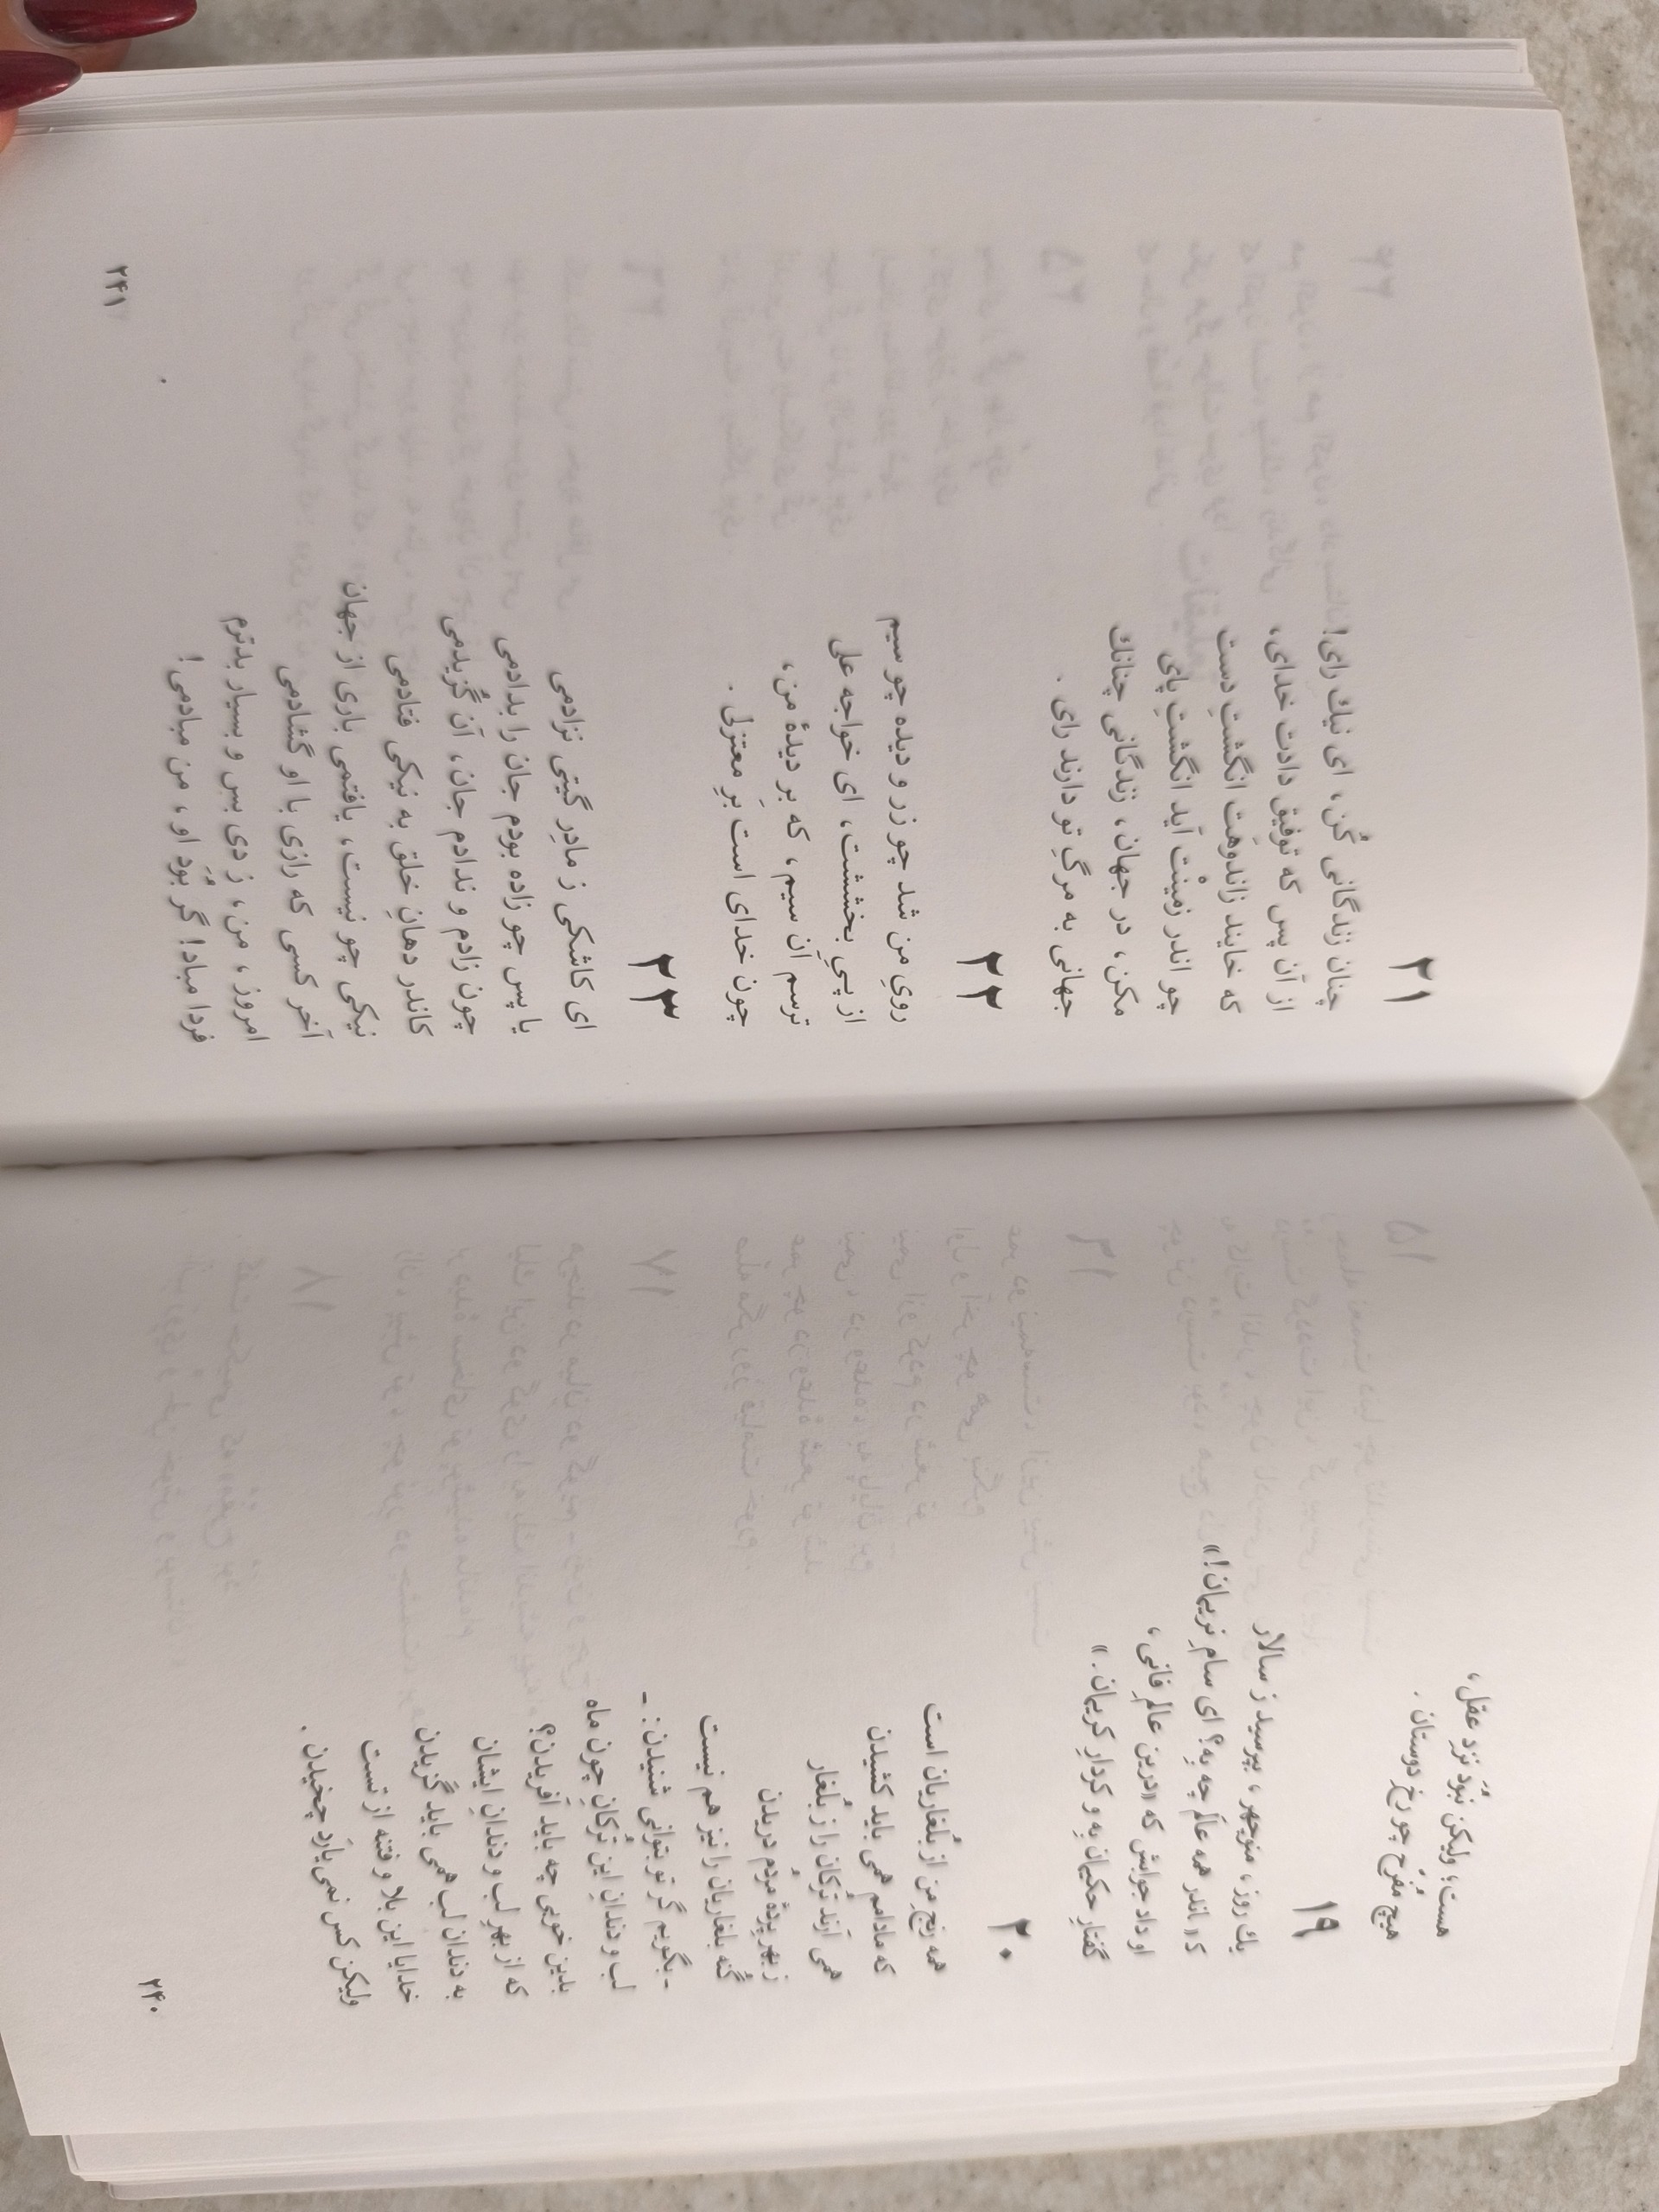 هست؛ ولیکن نَبُوَد نزدِ عقل،
هیچ مُفَرِّح چو رخِ دوستان.
۱۹
یك روز، منوچهر، بپرسید ز سالار
کـ «اندر همه عالَم چه بِه؟ ای سامِ نریمان!»
او داد جوابش که «درین عالمِ فانی،
گفتارِ حکیمان بِه و کردارِ کریمان.»
۲۰
همه رنجِ من از بُلغاریان است
که مادامم همی باید کشیدن
همی آرند تُرکان را ز بُلغار
ز بهرِ پردۀ مردُم دریدن
گُنه بلغاریان را نیز هم نیست
-بگویم گر تو بتوانی شنیدن:-
لب و دندانِ این تُرکانِ چون ماه
بدین خوبی چه باید آفریدن؟
که از بهرِ لب و دندانِ ایشان
به دندان لب همی باید گزیدن
خدایا این بلا و فتنه از تست
ولیکن کس نمی‌یارَد چخیدن.
۲۴۰
۲۱
چنان زندگانی کُن، ای نیك رای!
از آن پس که توفیق دادت خدای،
که خایند زاندوهَت انگشتِ دست
چو اندر زمینْت آید انگشتِ پای
مکن، در جهان، زندگانی چنانك
جهانی به مرگِ تو دارند رای.
۲۲
رویِ من شد چو زر و دیده چو سیم
از پیِ بخششت، ای خواجه علی
ترسم آن سیم، که بَر دیدۀ من،
چون خدای است برِ معتزلی.
۲۳
ای کاشکی ز مادرِ گیتی نزادمی
یا پس چو زاده بودم جان را بدادمی
چون زادم و ندادم جان، آن گُزیدمی
کاندر دهانِ خلق به نیکی فتادمی
نیکی چو نیست، یافتمی باری از جهان
آخر کسی که رازی با او گشادمی
امروز، من، ز دی بس و بسیار بدترم
فردا مباد! گر بُوَد او، من مبادمی!
۲۴۱